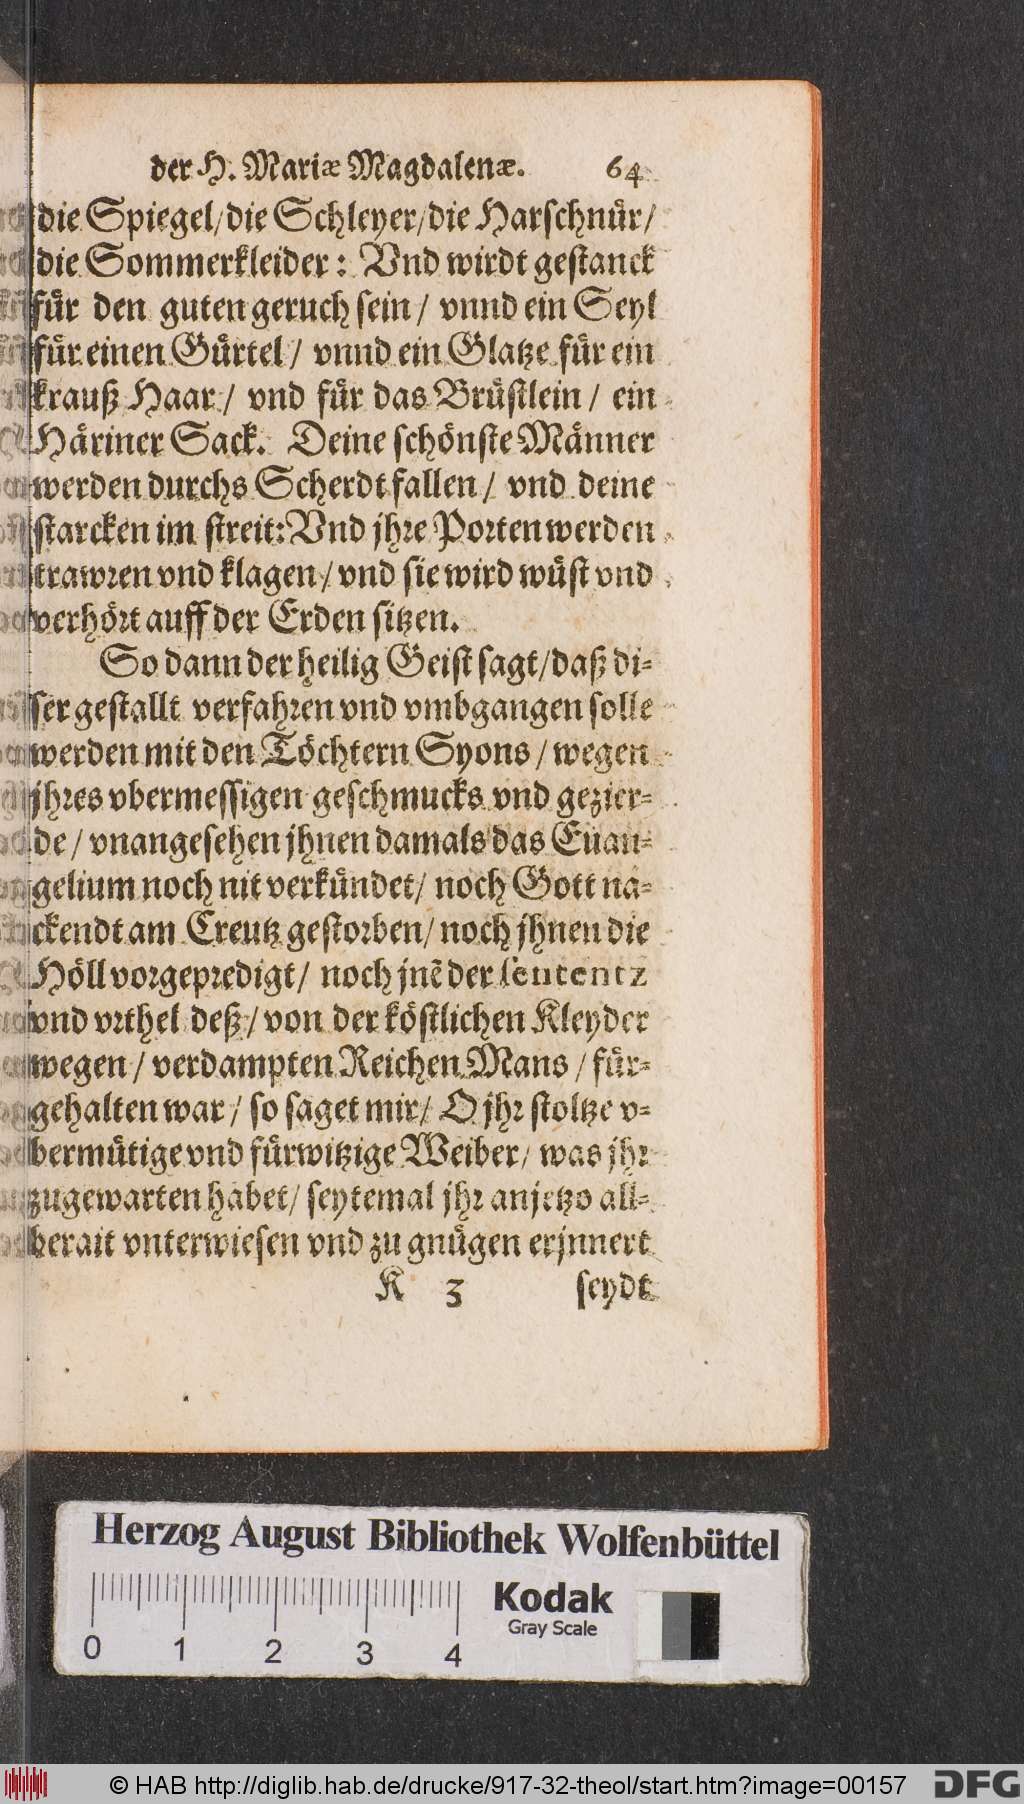 der H. Mariæ Magdalenæ. 64
die Spiegel/die Schleyer/die Harschnuͤr/
die Sommerkleider: Vnd wirdt gestanck
fuͤr den guten geruch sein/ vnnd ein Seyl
fuͤr einen Guͤrtel/ vnnd ein Glatze fuͤr ein
krauß Haar/ vnd fuͤr das Bruͤstlein/ ein
Haͤriner Sack. Deine schoͤnste Maͤnner
werden durchs Scherdt fallen/ vnd deine
starcken im streit: Vnd jhre Porten werden
trawren vnd klagen/ vnd sie wird wuͤst vnd
verhoͤrt auff der Erden sitzen.
So dann der heilig Geist sagt/daß di=
ser gestallt verfahren vnd vmbgangen solle
werden mit den Toͤchtern Syons/ wegen
jhres vbermessigen geschmucks vnd gezier=
de/ vnangesehen jhnen damals das Euan=
gelium noch nit verkuͤndet/ noch Gott na=
ckendt am Creutz gestorben/ noch jhnen die
Hoͤll vorgepredigt/ noch jnẽ der sententz
vnd vrthel deß/ von der koͤstlichen Kleyder
wegen/ verdampten Reichen Mans/ fuͤr=
gehalten war/ so saget mir/ O jhr stoltze v=
bermuͤtige vnd fuͤrwitzige Weiber/ was jhr
zugewarten habet/ seytemal jhr anjetzo all=
berait vnterwiesen vnd zu gnuͤgen erjnnert
K 3 seydt
Herzog August Bibliothek Wolfenbüttel
Kodak
Gray Scale
0 1 2 3 4
© HAB http://diglib.hab.de/drucke/917-32-theol/start.htm?image=00157
DFG